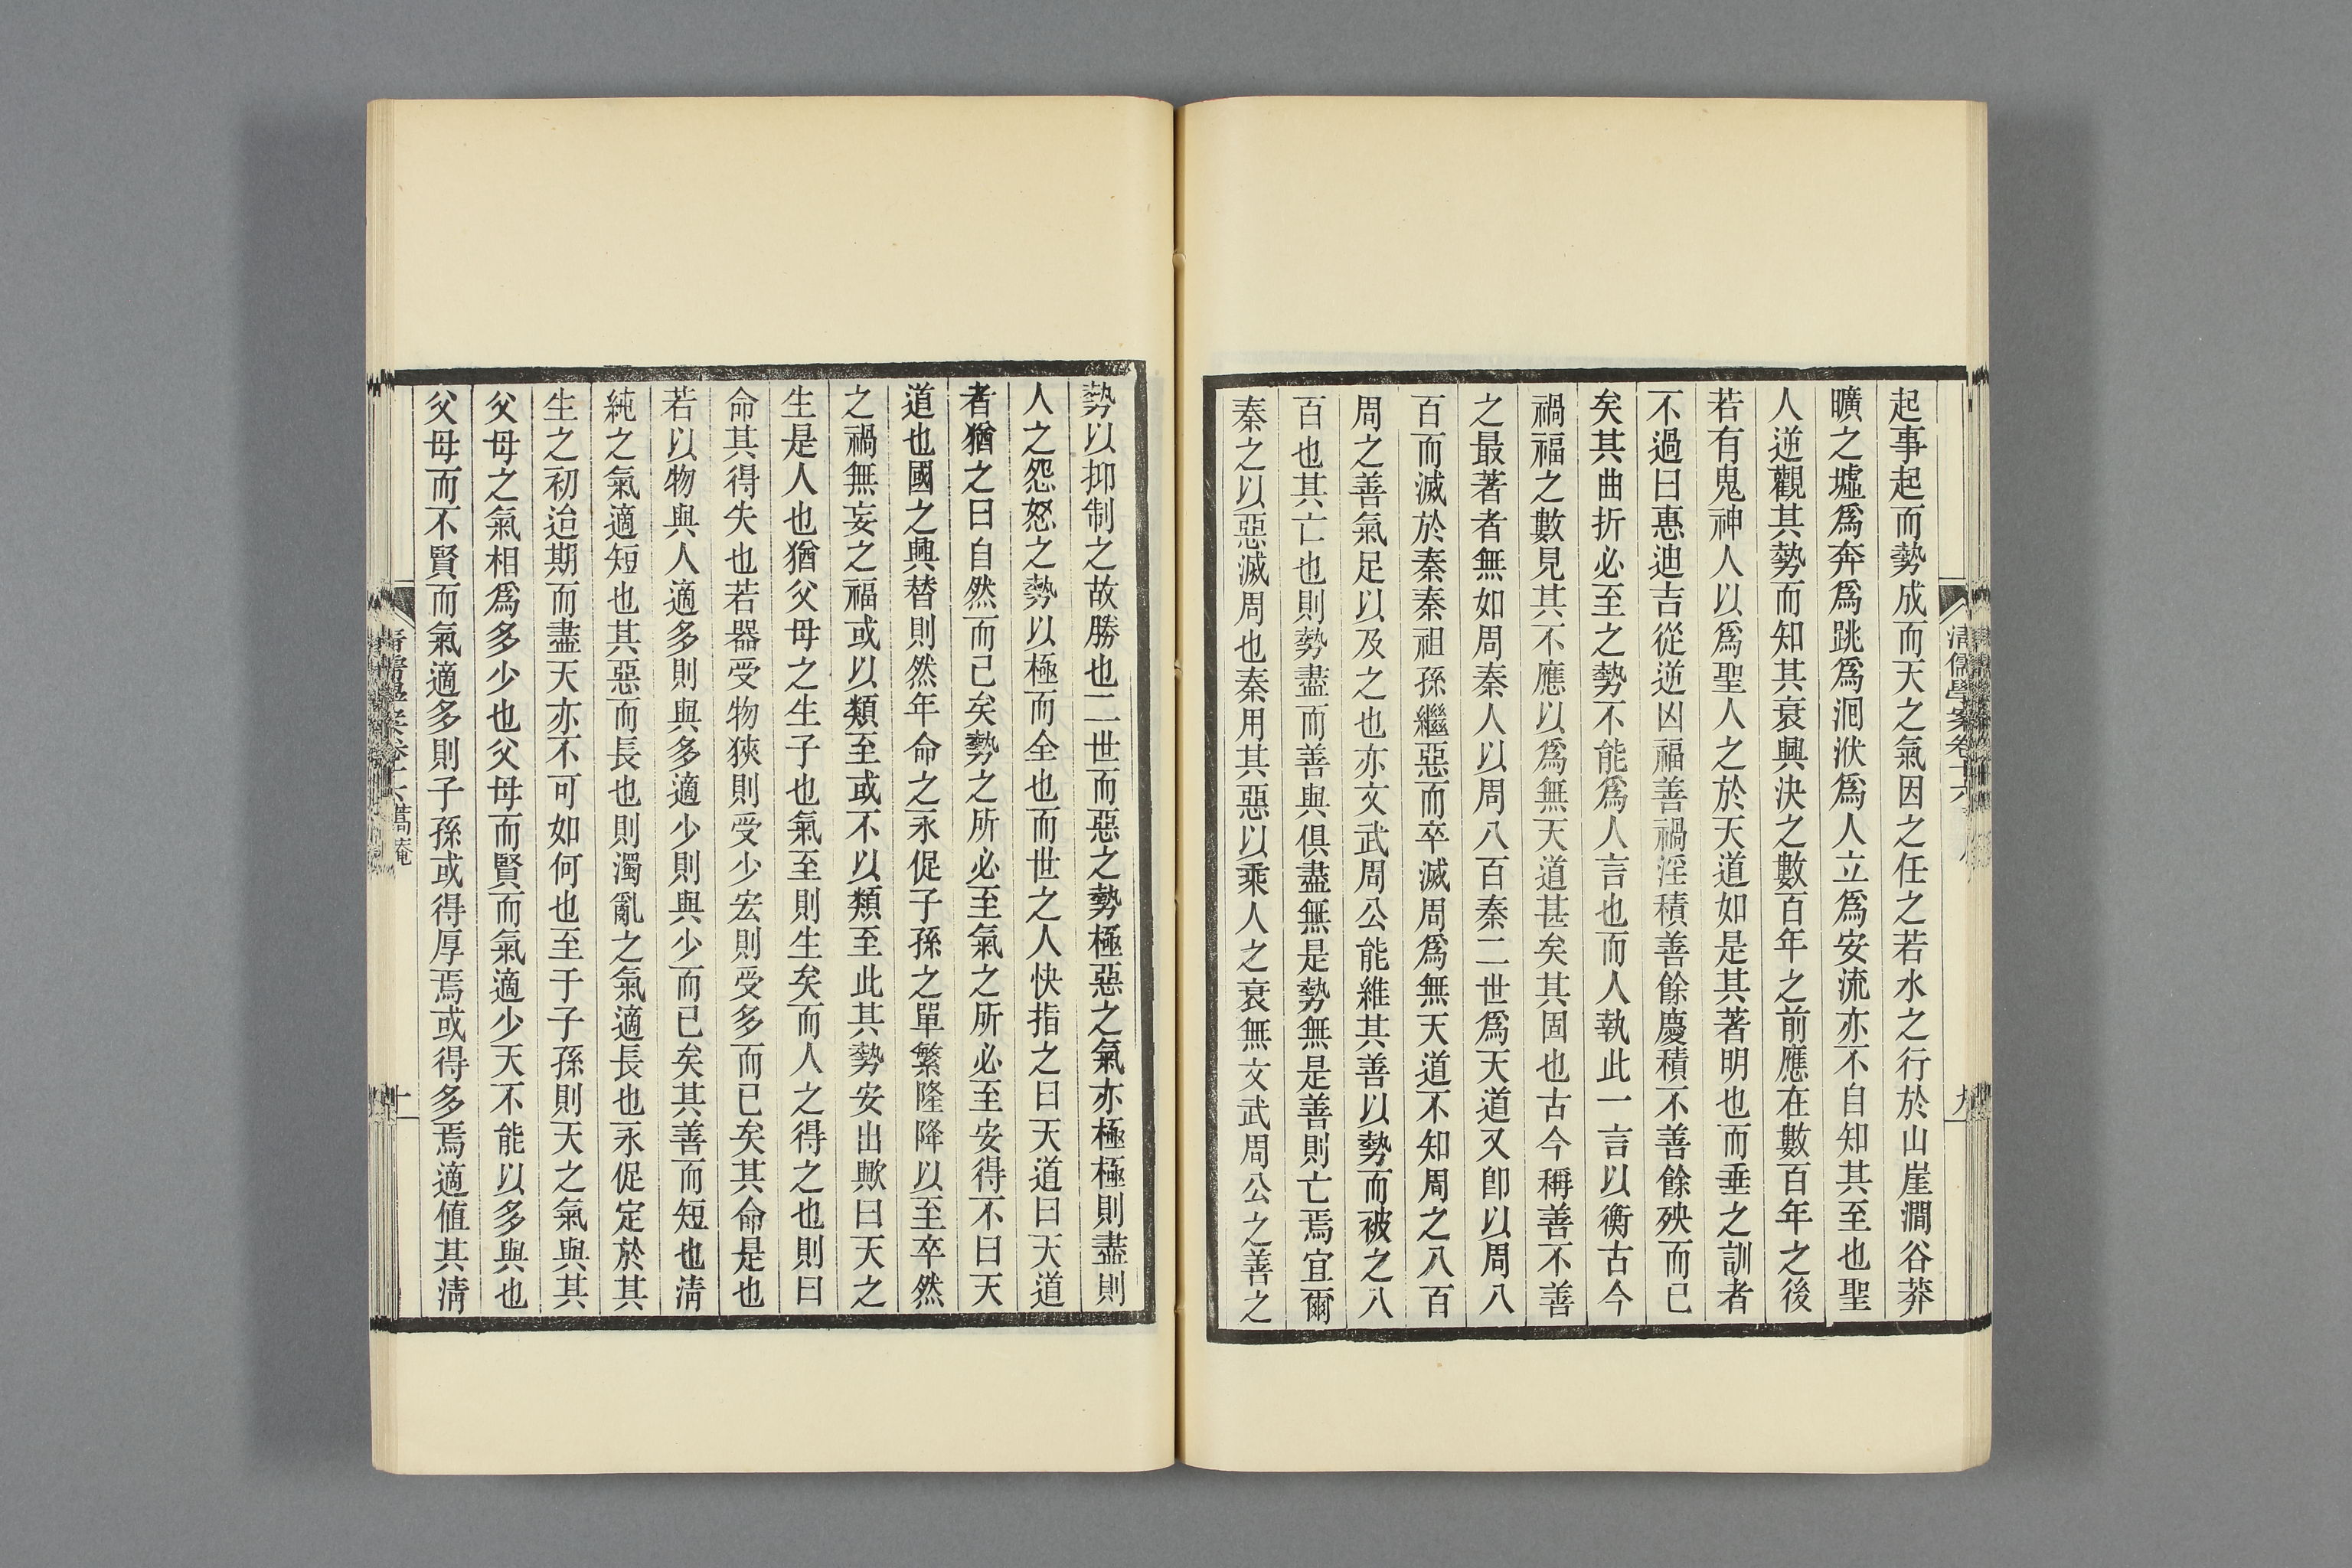 起事起而勢成而天之氣因之任之若水之行於山崖澗谷莽
曠之墟爲奔爲跳爲洄洑爲人立爲安流亦不自知其至也聖
人逆觀其勢而知其衰興決之數百年之前應在數百年之後
若有鬼神人以爲聖人之於天道如是其著明也而垂之訓者
不過曰惠迪吉從逆凶福善禍淫積善餘慶積不善餘殃而已
矣其曲折必至之勢不能爲人言也而人執此一言以衡古今
禍福之數見其不應以爲無天道甚矣其固也古今稱善不善
之最著者無如周秦人以周八百秦二世爲天道又卽以周八
百而滅於秦秦祖孫繼惡而卒滅周爲無天道不知周之八百
周之善氣足以及之也亦文武周公能維其善以勢而被之八
百也其亡也則勢盡而善與俱盡無是勢無是善則亡焉宜爾
秦之以惡滅周也秦用其惡以乘人之衰無文武周公之善之
清儒學案卷十六
九
勢以抑制之故勝也二世而惡之勢極惡之氣亦極極則盡則
人之怨怒之勢以極而全也而世之人快指之曰天道曰天道
者猶之曰自然而已矣勢之所必至氣之所必至安得不曰天
道也國之興替則然年命之永促子孫之單繁隆降以至卒然
之禍無妄之福或以類至或不以類至此其勢安出歟曰天之
生是人也猶父母之生子也氣至則生矣而人之得之也則曰
命其得失也若器受物狹則受少宏則受多而已矣其命是也
若以物與人適多則與多適少則與少而已矣其善而短也淸
純之氣適短也其惡而長也則濁亂之氣適長也永促定於其
生之初迨期而盡天亦不可如何也至于子孫則天之氣與其
父母之氣相爲多少也父母而賢而氣適少天不能以多與也
父母而不賢而氣適多則子孫或得厚焉或得多焉適値其淸
清儒學案卷十六 蒿庵
十